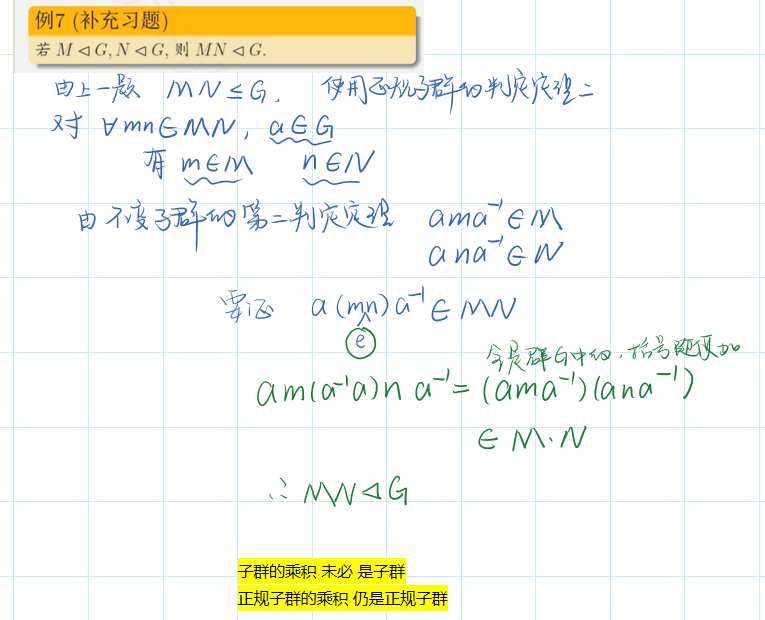 例7 (补充习题)
若 M ◁ G, N ◁ G, 则 MN ◁ G.
由上一题 MN ≤ G, 使用正规子群的判定定理二
对 ∀mn∈MN, a∈G
有 m∈M n∈N
由不变子群的第二判定定理 ama⁻¹∈M
ana⁻¹∈N
要证 a(mn)a⁻¹∈MN
e
全是群G中的,括号随便加
am(a⁻¹a)na⁻¹=(ama⁻¹)(ana⁻¹)
∈ M·N
∴ MN◁G
子群的乘积 未必 是子群
正规子群的乘积 仍是正规子群